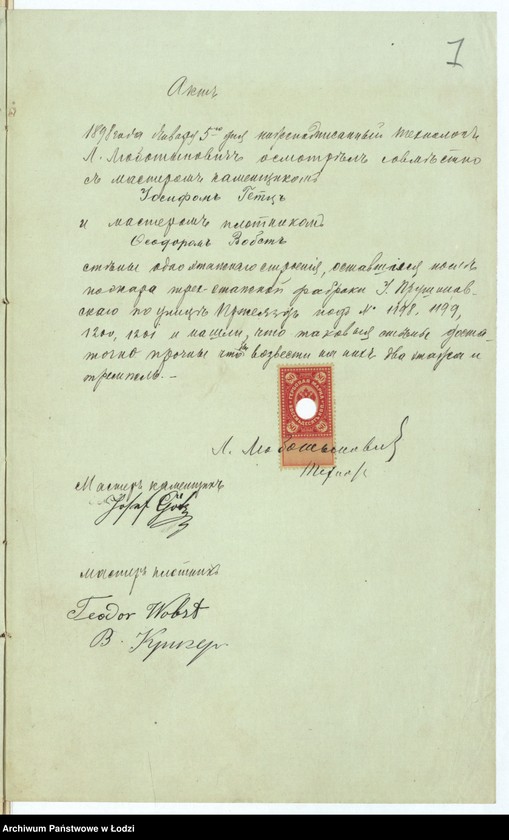 1
Актъ
1898 года Января 5го дня нижеподписанный технологъ
Л. Люботыновичъ осмотрѣлъ совмѣстно
съ мастеромъ каменщикомъ
Іосифомъ Гетцъ
и мастеромъ плотникомъ
Ѳеодоромъ Вобстъ
стѣны одноэтажнаго строенія, оставшіяся послѣ
пожара трехэтажной фабрики
скаго по улицѣ подъ № 1198. 1199,
1200, 1201 и нашли, что таковыя стѣны доста-
точно прочны чтобы возвести на нихъ два этажа и
.—
Л. Люботыновичъ
Мастеръ каменщикъ
Josef Götz
Мастеръ плотникъ
Teodor Wobst
В. Кригер
Archiwum Państwowe w Łodzi